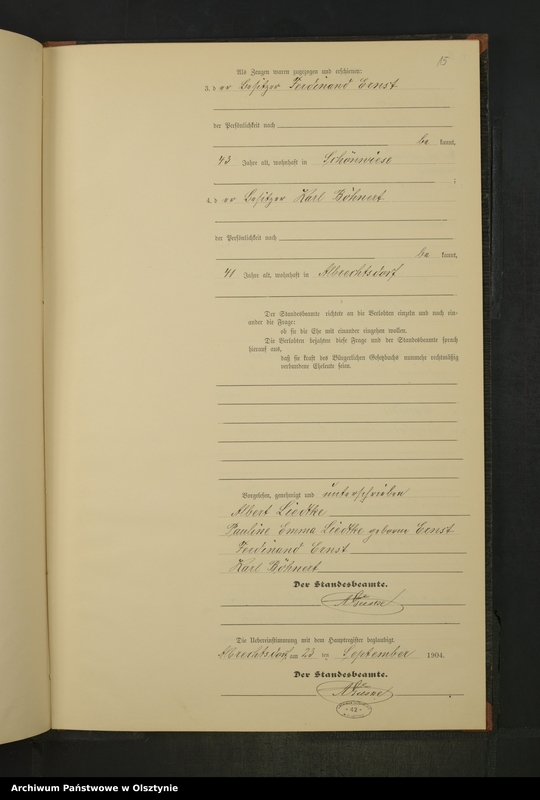 15
Als Zeugen waren zugezogen und erschienen:
3. der Besitzer Ferdinand Ernst
der Persönlichkeit nach
be kannt,
43 Jahre alt, wohnhaft in Schönwiese
;
4. der Besitzer Karl Böhnert
der Persönlichkeit nach
be kannt,
41 Jahre alt, wohnhaft in Albrechtsdorf
Der Standesbeamte richtete an die Verlobten einzeln und nach ein-
ander die Frage:
ob sie die Ehe mit einander eingehen wollen.
Die Verlobten bejahten diese Frage und der Standesbeamte sprach
hierauf aus,
daß sie kraft des Bürgerlichen Gesetzbuchs nunmehr rechtmäßig
verbundene Eheleute seien.
Vorgelesen, genehmigt und unterschrieben
Albert Liedtke
Pauline Emma Liedtke geborne Ernst
Ferdinand Ernst
Karl Böhnert
Der Standesbeamte.
Die Uebereinstimmung mit dem Hauptregister beglaubigt.
Albrechtsdorf am 23 ten September 1904.
Der Standesbeamte.
Archiwum Państwowe w Olsztynie